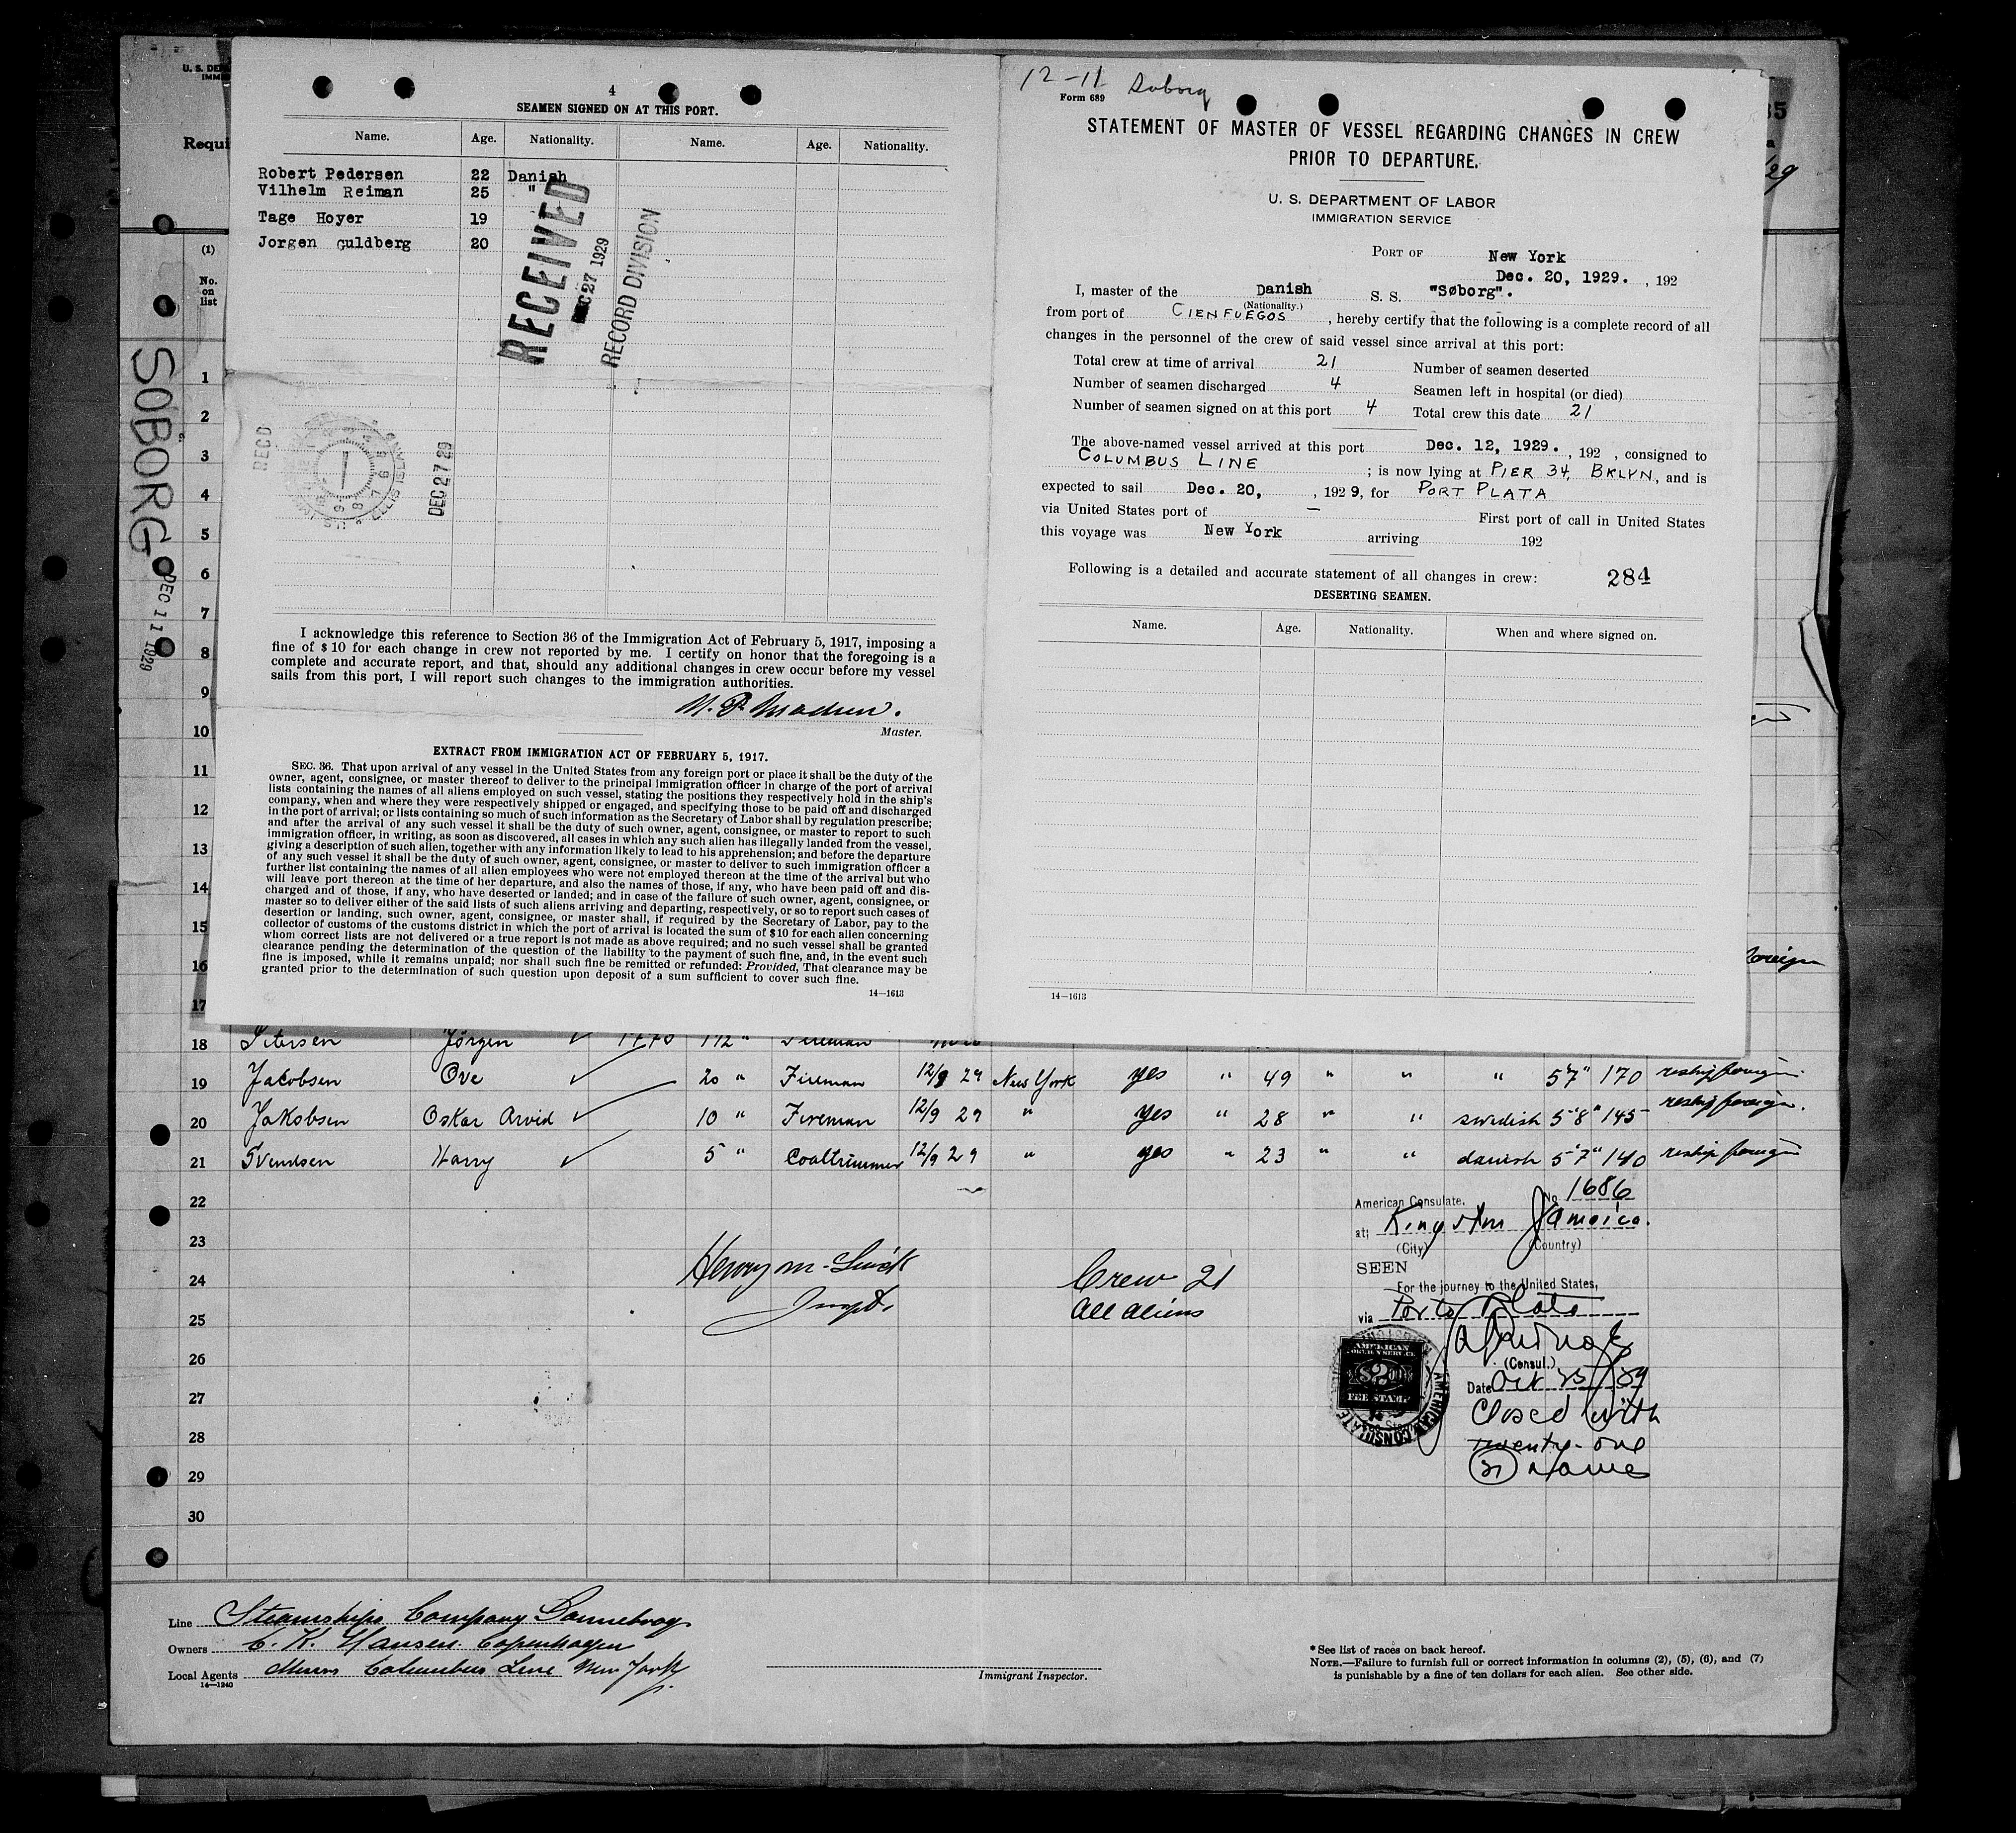 U. S. DE
IMM
Requi
(1)
No.
on
list
SOBORG
DEC 11 1929
4
SEAMEN SIGNED ON AT THIS PORT.
Name. Age. Nationality. Name. Age. Nationality.
Robert Pedersen 22 Danish
Vilhelm Reiman 25 "
Tage Hoyer 19
Jorgen Guldberg 20
RECEIVED
DEC 27 1929
RECORD DIVISION
REC'D
DEC 27 29
I acknowledge this reference to Section 36 of the Immigration Act of February 5, 1917, imposing a
fine of $10 for each change in crew not reported by me. I certify on honor that the foregoing is a
complete and accurate report, and that, should any additional changes in crew occur before my vessel
sails from this port, I will report such changes to the immigration authorities.
Madsen.
Master.
EXTRACT FROM IMMIGRATION ACT OF FEBRUARY 5, 1917.
SEC. 36. That upon arrival of any vessel in the United States from any foreign port or place it shall be the duty of the
owner, agent, consignee, or master thereof to deliver to the principal immigration officer in charge of the port of arrival
lists containing the names of all aliens employed on such vessel, stating the positions they respectively hold in the ship's
company, when and where they were respectively shipped or engaged, and specifying those to be paid off and discharged
in the port of arrival; or lists containing so much of such information as the Secretary of Labor shall by regulation prescribe;
and after the arrival of any such vessel it shall be the duty of such owner, agent, consignee, or master to report to such
immigration officer, in writing, as soon as discovered, all cases in which any such alien has illegally landed from the vessel,
giving a description of such alien, together with any information likely to lead to his apprehension; and before the departure
of any such vessel it shall be the duty of such owner, agent, consignee, or master to deliver to such immigration officer a
further list containing the names of all alien employees who were not employed thereon at the time of the arrival but who
will leave port thereon at the time of her departure, and also the names of those, if any, who have been paid off and dis-
charged and of those, if any, who have deserted or landed; and in case of the failure of such owner, agent, consignee, or
master so to deliver either of the said lists of such aliens arriving and departing, respectively, or so to report such cases of
desertion or landing, such owner, agent, consignee, or master shall, if required by the Secretary of Labor, pay to the
collector of customs of the customs district in which the port of arrival is located the sum of $10 for each alien concerning
whom correct lists are not delivered or a true report is not made as above required; and no such vessel shall be granted
clearance pending the determination of the question of the liability to the payment of such fine, and, in the event such
fine is imposed, while it remains unpaid; nor shall such fine be remitted or refunded: Provided, That clearance may be
granted prior to the determination of such question upon deposit of a sum sufficient to cover such fine.
14—1613
12-11 Soborg
Form 689
STATEMENT OF MASTER OF VESSEL REGARDING CHANGES IN CREW
PRIOR TO DEPARTURE.
U. S. DEPARTMENT OF LABOR
IMMIGRATION SERVICE
PORT OF New York
Dec. 20, 1929. , 192
I, master of the Danish S. S. "Søborg".
(Nationality.)
from port of CIENFUEGOS , hereby certify that the following is a complete record of all
changes in the personnel of the crew of said vessel since arrival at this port:
Total crew at time of arrival 21 Number of seamen deserted
Number of seamen discharged 4 Seamen left in hospital (or died)
Number of seamen signed on at this port 4 Total crew this date 21
The above-named vessel arrived at this port Dec. 12, 1929. , 192 , consigned to
COLUMBUS LINE ; is now lying at PIER 34, BKLYN, and is
expected to sail Dec. 20, , 1929, for PORT PLATA
via United States port of — First port of call in United States
this voyage was New York arriving 192
Following is a detailed and accurate statement of all changes in crew: 284
DESERTING SEAMEN.
Name. Age. Nationality. When and where signed on.
14—1613
35
a
/29
foreign
1
2
3
4
5
6
7
8
9
10
11
12
13
14
15
16
17
18 Petersen Jörgen ✓ 1 1/2 " Fireman
19 Jacobsen Ove ✓ 20 " Fireman 12/9 29 New York yes " 49 " " " 5'7" 170 reship foreign.
20 Jakobsen Oskar Arvid ✓ 10 " Fireman 12/9 29 " yes " 28 " " swedish 5'8" 145 reship foreign.
21 Svendsen Harry ✓ 5 " Coaltrimmer 12/9 29 " yes " 23 " " danish 5'7" 140 reship foreign
22
23
24
25
26
27
28
29
30
Crew 21
All aliens
American Consulate. No 1686
at: Kingston Jamaica.
(City) (Country)
SEEN
For the journey to the United States,
via Porto Plata
(Consul.)
Date Oct 25/29
Closed with
twenty-one
(21) names
AMERICAN
FOREIGN SERVICE
$2
FEE STAMP
AMERICAN CONSULATE
Line Steamships Company Dannebrog
Owners C. K. Hansen Copenhagen
Local Agents Messrs Columbus Line New York.
14—1240
Immigrant Inspector.
* See list of races on back hereof.
NOTE.—Failure to furnish full or correct information in columns (2), (5), (6), and (7)
is punishable by a fine of ten dollars for each alien. See other side.